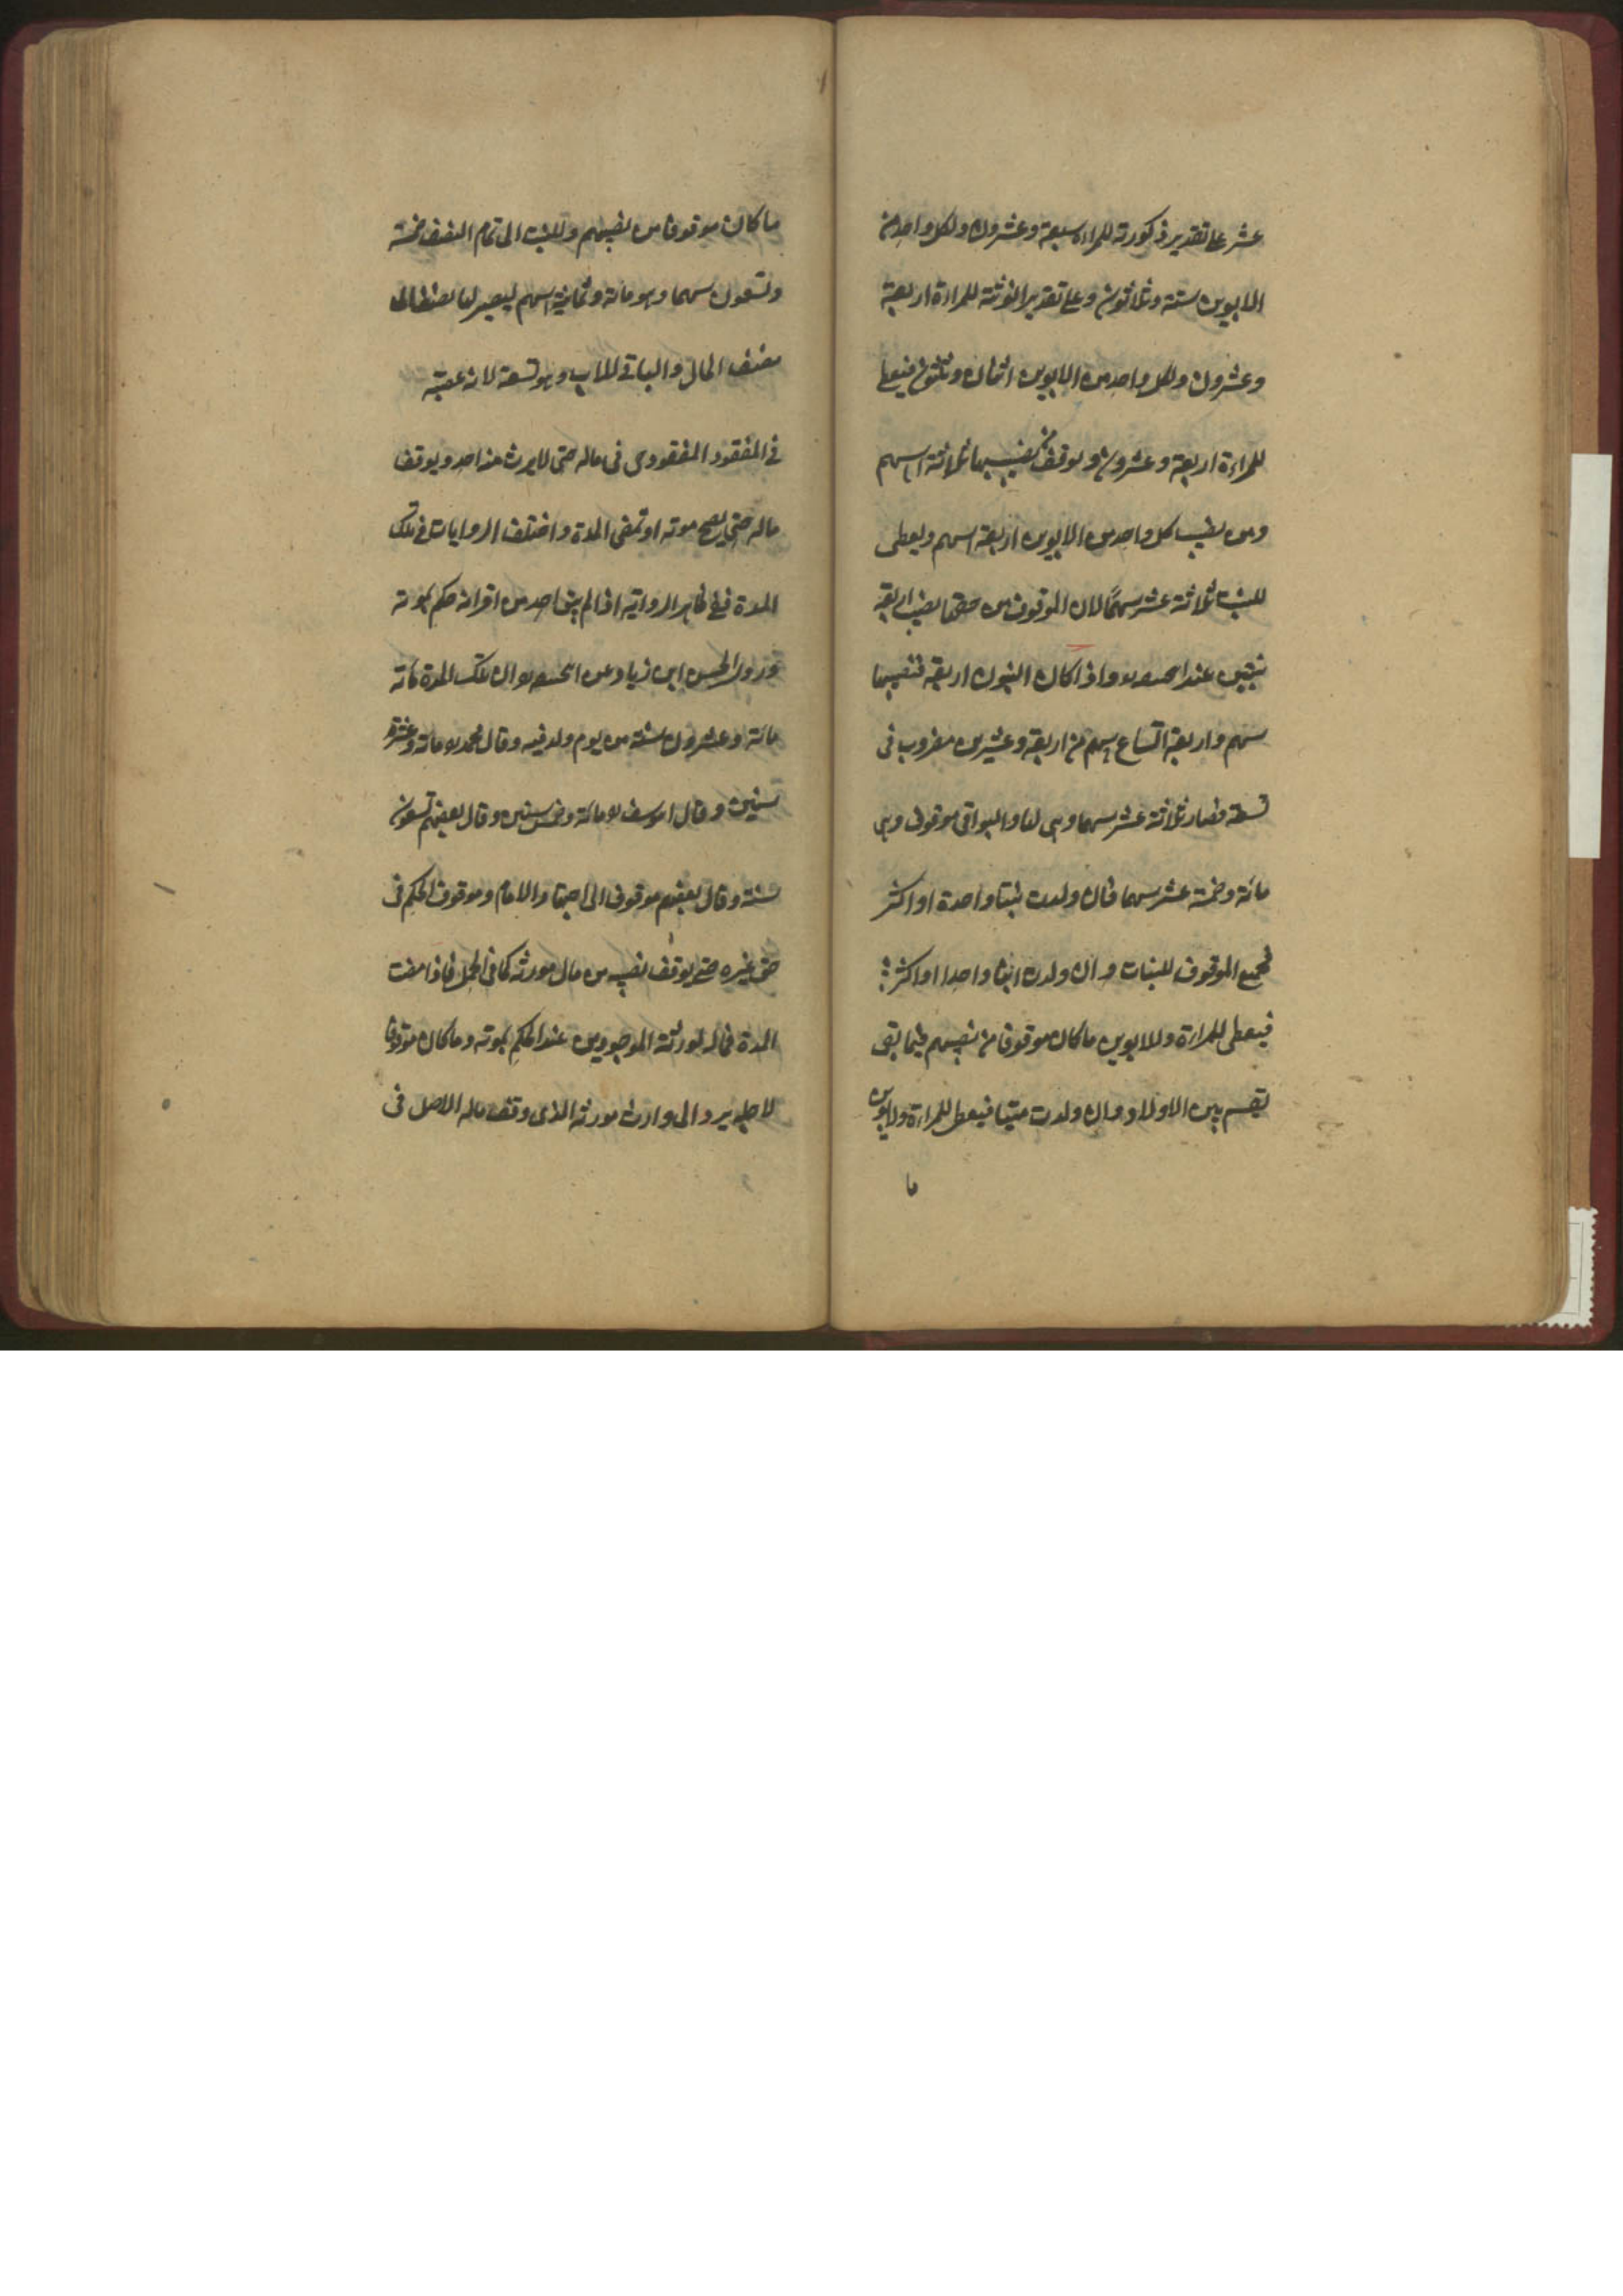 عشر على تقدير ذكورته للمراة سبعة وعشرون ولكل واحد من
الابوين ستة وثلاثون وعلى تقدير انوثته للمراءة اربعة
وعشرون ولكل واحد من الابوين اثنان وثلثون فيعطى
للمراءة اربعة وعشرون ويوقف من نصيبها ثلاثة اسهم
ومن نصيب كل واحد من الابوين اربعة اسهم ويعطى
للبنت ثلاثة عشر سهمًا لان الموقوف من حقها نصيب اربعة
بنين عند واذا كان البنون اربعة فنصيبها
سهم واربعة اتساع سهم من اربعة وعشرين مضروب فى
تسعة فصار ثلاثة عشر سهما وهى لها والبواقى موقوف وهى
مائة وخمسة عشر سهما فان ولدت بنتا واحدة او اكثر
فجميع الموقوف للبنات وان ولدت ابنا واحدا او اكثر
فيعطى للمراءة وللابوين ما كان موقوفا من نصيبهم فيما بقى
يقسم بين الاولاد وان ولدت ميتا فيعطى للمراءة وللابوين
ما
ما كان موقوفا من نصيبهم وللبنت الى تمام النصف خمسة
وتسعون سهما وهو مائة وثمانية اسهم ليصير لها
نصف المال والباقى للاب وهو تسعة لانه عصبة
فى المفقود المفقود حى فى ماله حتى لا يرث منه احد ويوقف
ماله حتى يصح موته او تمضى المدة واختلف الروايات فى تلك
المدة ففى ظاهر الرواية اذا لم يبق احد من اقرانه حكم بموته
وروى الحسن ابن زياد عن ان تلك المدة مائة
مائة وعشرون سنة من يوم ولد فيه وقال محمد مائة وعشر
سنين وقال ابو يوسف مائة وخمس سنين وقال بعضهم تسعون
سنة وقال بعضهم موقوف الى اجتهاد الامام وموقوف الحكم فى
حق غيره حتى يوقف نصيبه من مال مورثه كما فى الحمل فاذا مضت
المدة فماله لورثته الموجودين عند الحكم بموته وما كان موقوفا
لاجله يرد الى وارث مورثه الذى وقف ماله الاصل فى